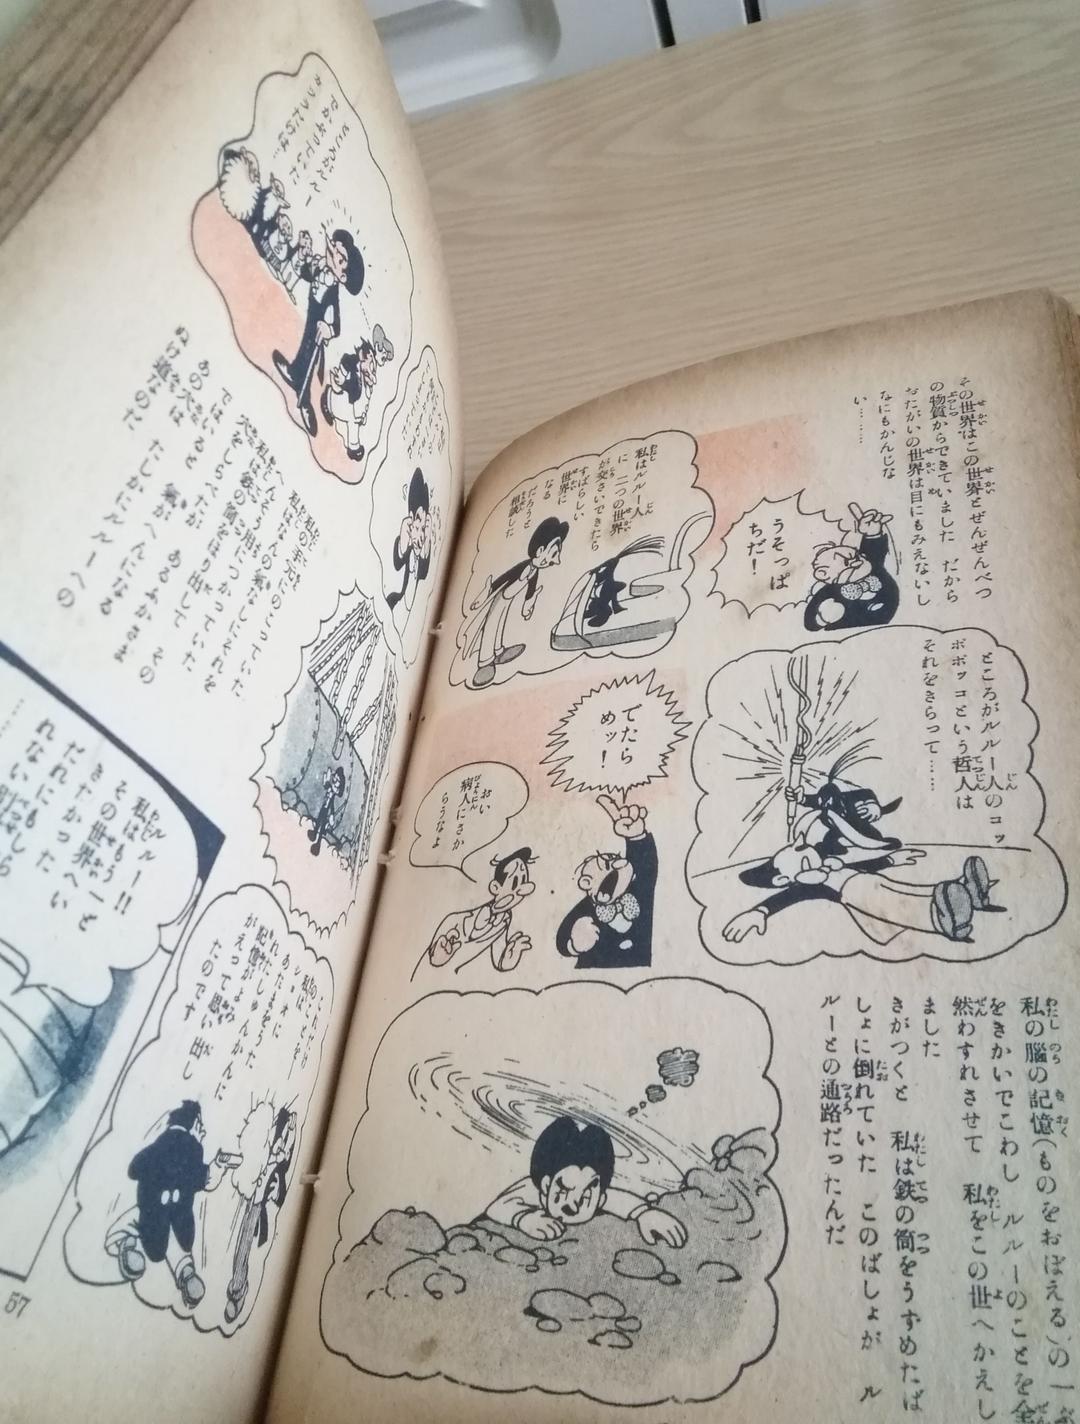 その世界はこの世界とぜんぜんべつ
の物質からできていました　だから
おたがいの世界は目にもみえないし
なにもかんじな
い……
うそっぱ
ちだ！
私はルルー人
に　二つの世界
が交さいできたら
すばらしい
世界に
なる
だろうと
相談した
ところがルルー人のコッ
ポポッコという哲人は
それをきらって……
でたら
めッ！
おい
病人にさか
らうなよ
私の脳の記憶（ものをおぼえる）の一
をきかいでこわし　ルルーのことを全
然わすれさせて　私をこの世へかえし
ました
きがつくと　私は鉄の筒をうずめたば
しょに倒れていた　このばしょが　ル
ルーとの通路だったんだ
ところがルルー
でかよっていた
カッラだけは…
私の手元に　のこっていた
へんなんの氣なしにそれを
私はへんそう用につかっていた
穴をしらべたが　あるふかさま
ではいると　氣がへんになる
あの穴は　たしかにルルーへの
ぬけ道なのだ
ルルー!!
私はもう一ど
その世界へい
きたかった
だれにも
れない
……
これだけ
あたまをうた
れたしゅんかんに
記憶がよみ
がえって思い出し
たのです
57